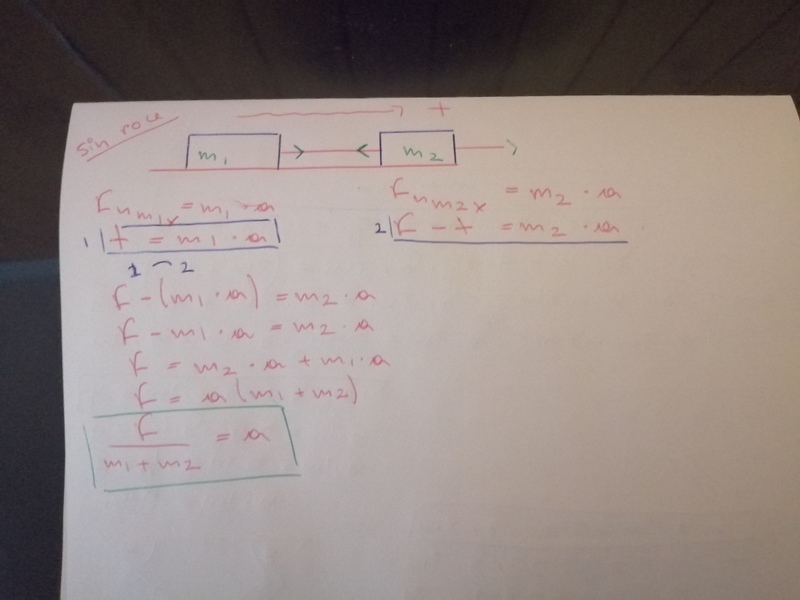 Sin roce
+
m1 m2
Fn m1x = m1 · a
Fn m2x = m2 · a
1 T = m1 · a
2 F - T = m2 · a
1 2
F - (m1 · a) = m2 · a
F - m1 · a = m2 · a
F = m2 · a + m1 · a
F = a (m1 + m2)
F / m1 + m2 = a